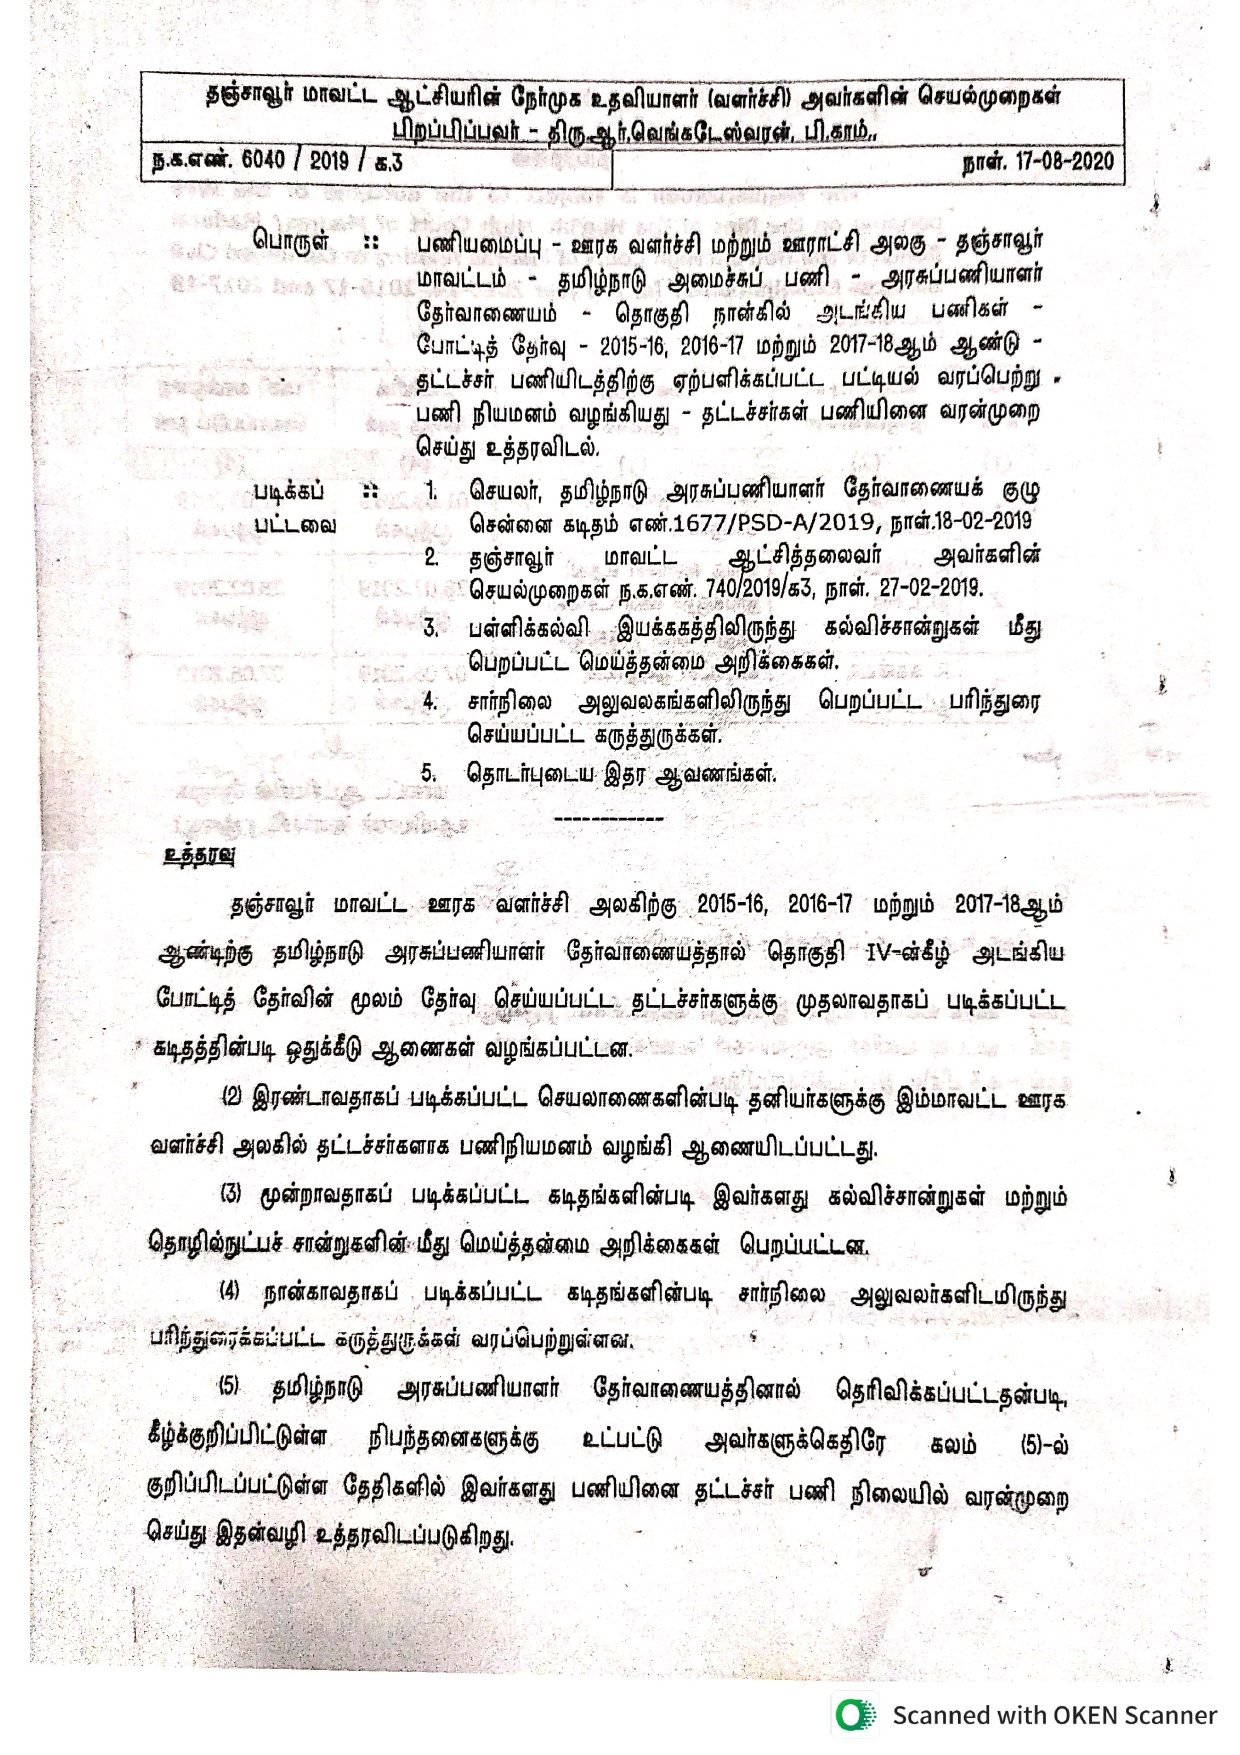 தஞ்சாவூர் மாவட்ட ஆட்சியரின் நேர்முக உதவியாளர் (வளர்ச்சி) அவர்களின் செயல்முறைகள்
பிறப்பிப்பவர் - திரு.ஆர்.வெங்கடேஸ்வரன், பி.காம்.,
ந.க.எண். 6040 / 2019 / க.3 நாள். 17-08-2020
பொருள் :: பணியமைப்பு - ஊரக வளர்ச்சி மற்றும் ஊராட்சி அலகு - தஞ்சாவூர்
மாவட்டம் - தமிழ்நாடு அமைச்சுப் பணி - அரசுப்பணியாளர்
தேர்வாணையம் - தொகுதி நான்கில் அடங்கிய பணிகள் -
போட்டித் தேர்வு - 2015-16, 2016-17 மற்றும் 2017-18ஆம் ஆண்டு -
தட்டச்சர் பணியிடத்திற்கு ஏற்பளிக்கப்பட்ட பட்டியல் வரப்பெற்று
பணி நியமனம் வழங்கியது - தட்டச்சர்கள் பணியினை வரன்முறை
செய்து உத்தரவிடல்.
படிக்கப் :: 1. செயலர், தமிழ்நாடு அரசுப்பணியாளர் தேர்வாணையக் குழு
பட்டவை சென்னை கடிதம் எண்.1677/PSD-A/2019, நாள்.18-02-2019
2. தஞ்சாவூர் மாவட்ட ஆட்சித்தலைவர் அவர்களின்
செயல்முறைகள் ந.க.எண். 740/2019/க3, நாள். 27-02-2019.
3. பள்ளிக்கல்வி இயக்ககத்திலிருந்து கல்விச்சான்றுகள் மீது
பெறப்பட்ட மெய்த்தன்மை அறிக்கைகள்.
4. சார்நிலை அலுவலகங்களிலிருந்து பெறப்பட்ட பரிந்துரை
செய்யப்பட்ட கருத்துருக்கள்.
5. தொடர்புடைய இதர ஆவணங்கள்.
------------
உத்தரவு
தஞ்சாவூர் மாவட்ட ஊரக வளர்ச்சி அலகிற்கு 2015-16, 2016-17 மற்றும் 2017-18ஆம்
ஆண்டிற்கு தமிழ்நாடு அரசுப்பணியாளர் தேர்வாணையத்தால் தொகுதி IV-ன்கீழ் அடங்கிய
போட்டித் தேர்வின் மூலம் தேர்வு செய்யப்பட்ட தட்டச்சர்களுக்கு முதலாவதாகப் படிக்கப்பட்ட
கடிதத்தின்படி ஒதுக்கீடு ஆணைகள் வழங்கப்பட்டன.
(2) இரண்டாவதாகப் படிக்கப்பட்ட செயலாணைகளின்படி தனியர்களுக்கு இம்மாவட்ட ஊரக
வளர்ச்சி அலகில் தட்டச்சர்களாக பணிநியமனம் வழங்கி ஆணையிடப்பட்டது.
(3) மூன்றாவதாகப் படிக்கப்பட்ட கடிதங்களின்படி இவர்களது கல்விச்சான்றுகள் மற்றும்
தொழில்நுட்பச் சான்றுகளின் மீது மெய்த்தன்மை அறிக்கைகள் பெறப்பட்டன.
(4) நான்காவதாகப் படிக்கப்பட்ட கடிதங்களின்படி சார்நிலை அலுவலர்களிடமிருந்து
பரிந்துரைக்கப்பட்ட கருத்துருக்கள் வரப்பெற்றுள்ளன.
(5) தமிழ்நாடு அரசுப்பணியாளர் தேர்வாணையத்தினால் தெரிவிக்கப்பட்டதன்படி,
கீழ்க்குறிப்பிட்டுள்ள நிபந்தனைகளுக்கு உட்பட்டு அவர்களுக்கெதிரே கலம் (5)-ல்
குறிப்பிடப்பட்டுள்ள தேதிகளில் இவர்களது பணியினை தட்டச்சர் பணி நிலையில் வரன்முறை
செய்து இதன்வழி உத்தரவிடப்படுகிறது.
Scanned with OKEN Scanner